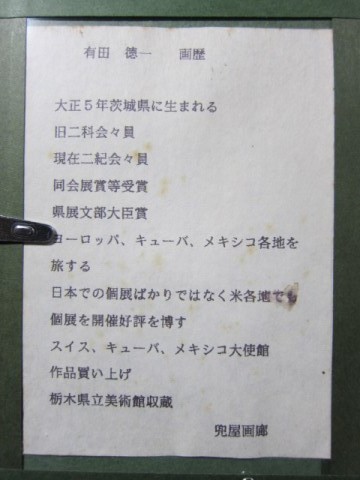 有田 徳一 画歴
大正5年茨城県に生まれる
旧二科会々員
現在二紀会々員
同会展賞等受賞
県展文部大臣賞
ヨーロッパ、キューバ、メキシコ各地を
旅する
日本での個展ばかりではなく米各地でも
個展を開催好評を博す
スイス、キューバ、メキシコ大使館
作品買い上げ
栃木県立美術館収蔵
兜屋画廊